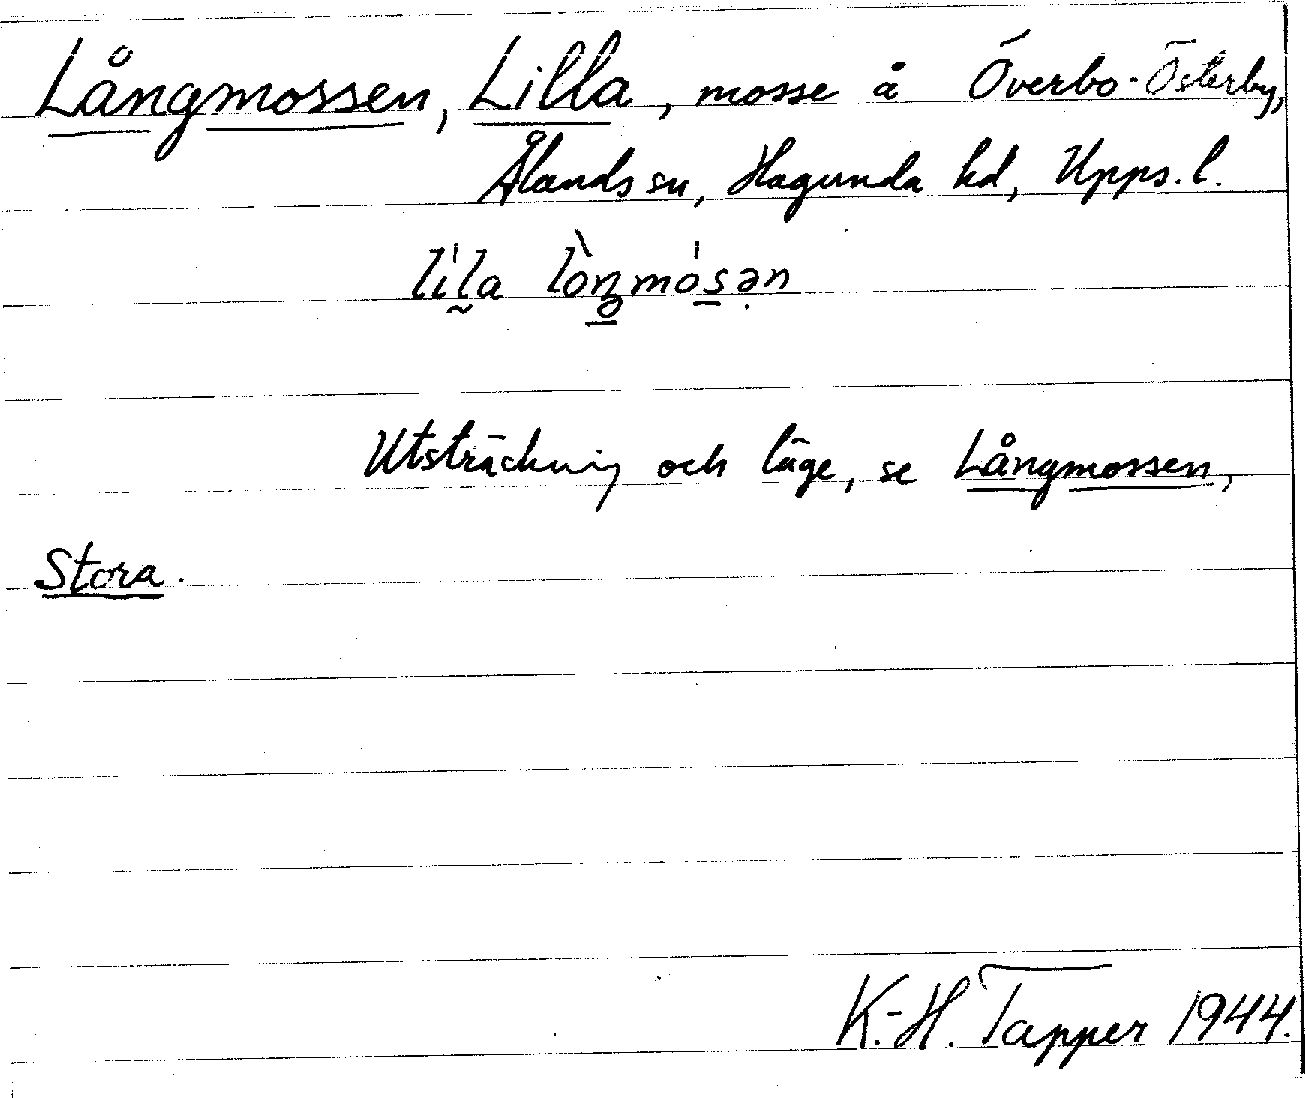 Långmossen, Lilla, mosse å Överbo-Österby,
Ålands sn, Hagunda hd, Upps. l.
li̍la lòŋmo̍sən
Utsträckning och läge, se Långmossen,
Stora.
K.-H. Tapper 1944.